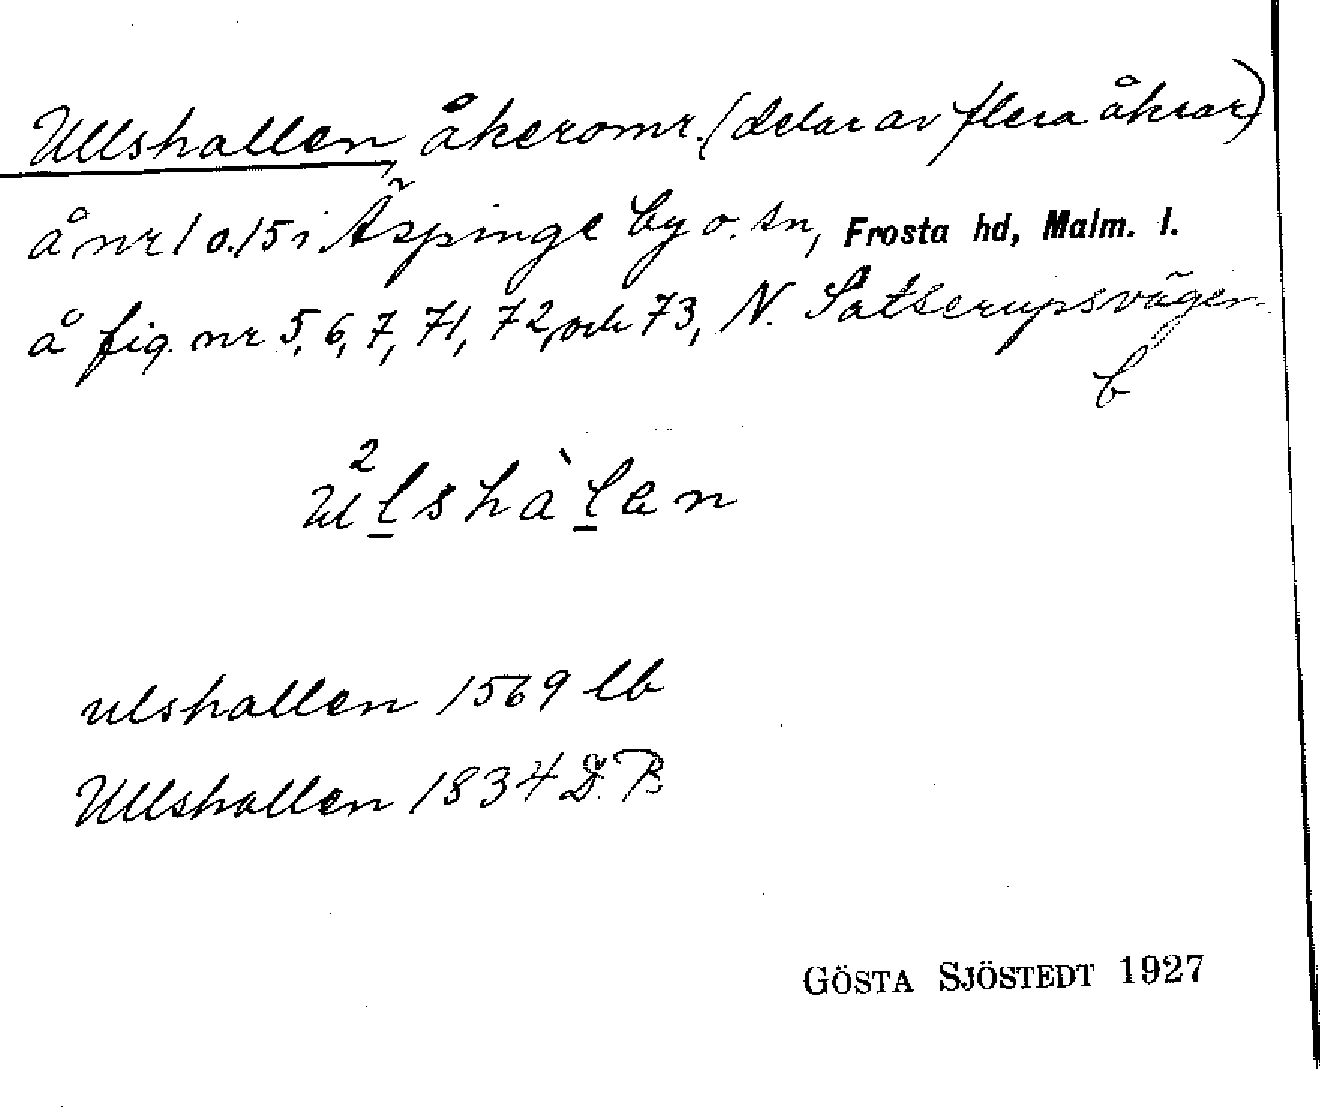 Ullshallen, åkeromr. (delar av flera åkrar)
å nr 1 o. 15 i Äspinge by o. sn, Frosta hd, Malm. l.
å fig. nr 5, 6, 7, 71, 72, och 73, N. Satserupsvägen
b
ulshallen 1569 lb
Ullshallen 1834
GÖSTA SJÖSTEDT 1927